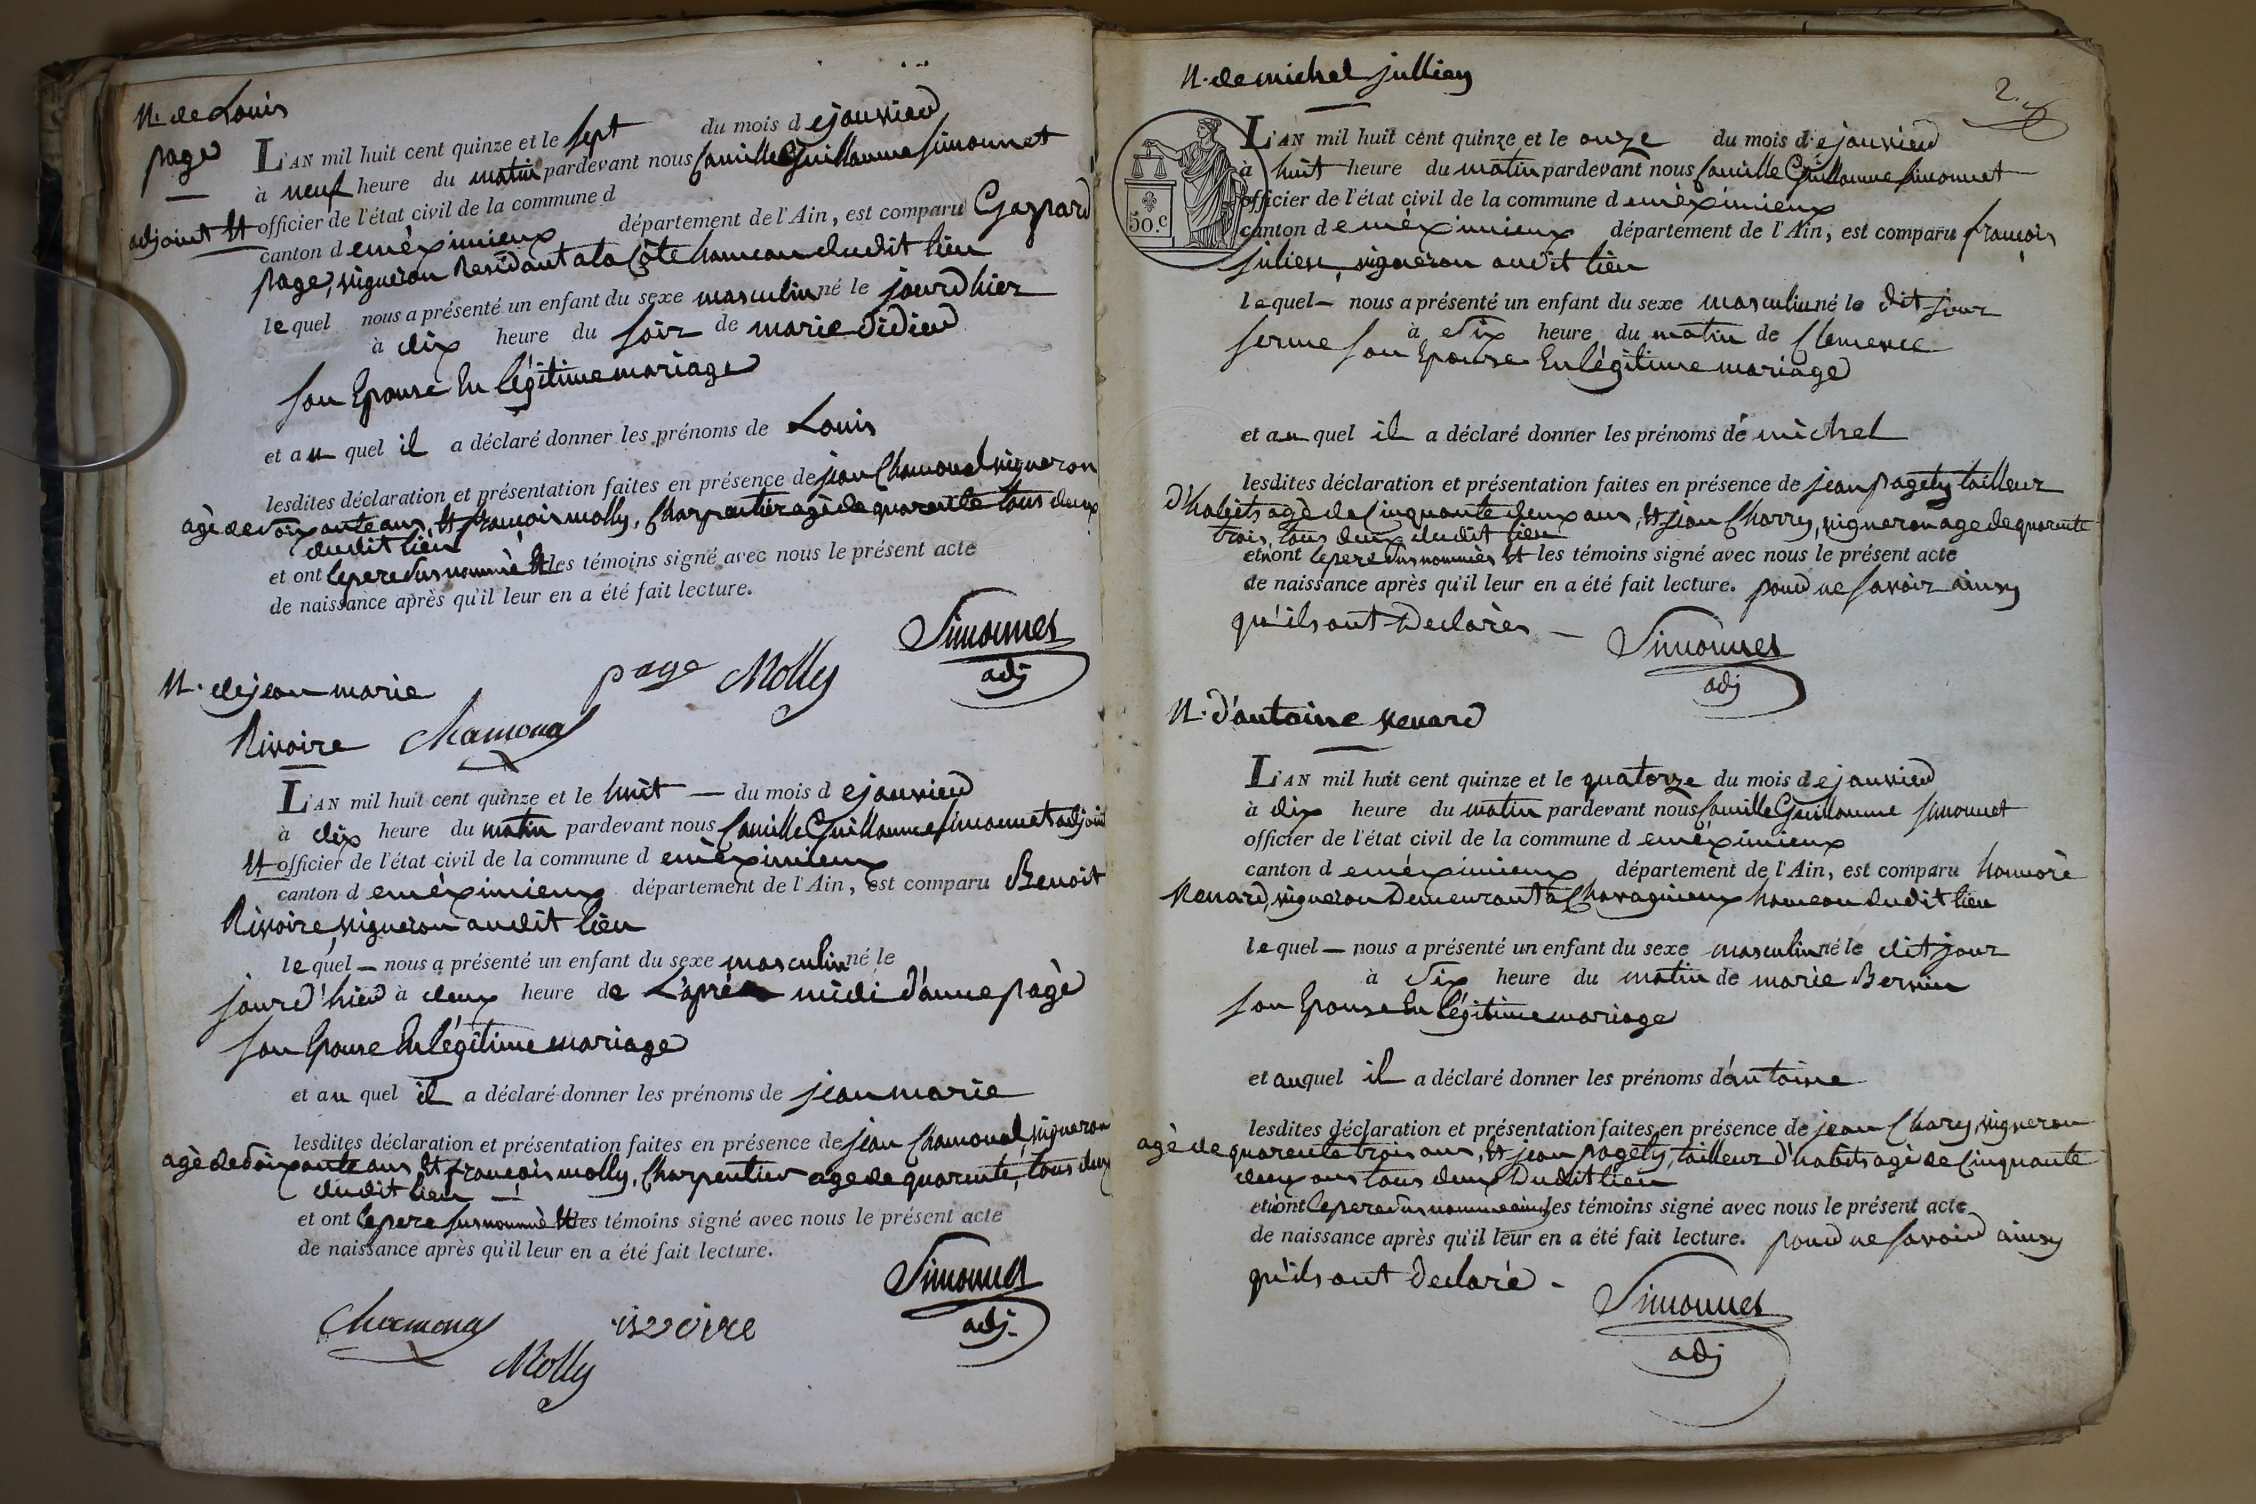 N. de Louis
page
L'AN mil huit cent quinze et le sept du mois de janvier
à neuf heure du matin pardevant nous Camille Guillaume Simonnet
adjoint et officier de l'état civil de la commune d
canton de méximieux département de l'Ain, est comparu Gaspard
page, vigneron Residant a la Côte hameau dudit lieu
lequel nous a présenté un enfant du sexe masculin né le jourd'hier
à dix heure du soir de marie didier
son Epouse En légitime mariage
et au quel il a déclaré donner les prénoms de Louis
lesdites déclaration et présentation faites en présence de jean Chamonal vigneron
agè de soixante ans, et françois molly, Charpentier agè de quarente tous deux
dudit lieu
et ont le pere susnommè et les témoins signé avec nous le présent acte
de naissance après qu'il leur en a été fait lecture.
Simonnet
adj
page Molly
Chamonal
N. de jean marie
Rivoire
L'AN mil huit cent quinze et le huit du mois de janvier
à dix heure du matin pardevant nous Camille Guillaume Simonnet adjoint
et officier de l'état civil de la commune de mèximieux
canton de mèximieux département de l'Ain, est comparu Benoit
Rivoire, vigneron audit lieu
lequel nous a présenté un enfant du sexe masculin né le
jourd'hier à deux heure de L'après midi d'anne pagè
son Epouse En légitime mariage
et au quel il a déclaré donner les prénoms de jean marie
lesdites déclaration et présentation faites en présence de jean Chamonal, vigneron
agè de soixante ans, et françois molly, Charpentier age de quarente, tous deux
dudit lieu
et ont le pere susnommè et les témoins signé avec nous le présent acte
de naissance après qu'il leur en a été fait lecture.
Simonnet
adj.
Chamonal
Molly
N. de michel jullien
2.
50. c
L'AN mil huit cent quinze et le onze du mois de janvier
à huit heure du matin pardevant nous Camille Guillaume Simonnet
officier de l'état civil de la commune de mèximieux
canton de mèximieux département de l'Ain, est comparu françois
julien, vigneron audit lieu
lequel nous a présenté un enfant du sexe masculin né le dit jour
à six heure du matin de Clemence
serme son Epouse En légitime mariage
et au quel il a déclaré donner les prénoms de michel
lesdites déclaration et présentation faites en présence de jean pagety tailleur
d'habits agè de Cinquante deux ans, et jean Charry, vigneron age de quarente
trois, tous deux dudit lieu
et n'ont le pere susnommès et les témoins signé avec nous le présent acte
de naissance après qu'il leur en a été fait lecture. pour ne savoir ainsy
qu'ils ont Declarès
Simonnet
adj
N. d'antoine renard
L'AN mil huit cent quinze et le quatorze du mois de janvier
à dix heure du matin pardevant nous Camille Guillaume Simonnet
officier de l'état civil de la commune de mèximieux
canton de méximieux département de l'Ain, est comparu honnorè
Renard, vigneron Demeurant a Chavagnieux hameau dudit lieu
lequel nous a présenté un enfant du sexe masculin né le dit jour
à six heure du matin de marie Bernin
son Epouse En légitime mariage
et auquel il a déclaré donner les prénoms d'antoine
lesdites déclaration et présentation faites en présence de jean Chary, vigneron
agè de quarente trois ans, et jean pagety, tailleur d'habits agè de Cinquante
deux ans tous deux Dudit lieu
et n'ont le pere susnommé les témoins signé avec nous le présent acte
de naissance après qu'il leur en a été fait lecture. pour ne savoir ainsy
qu'ils ont Declaré
Simonnet
adj